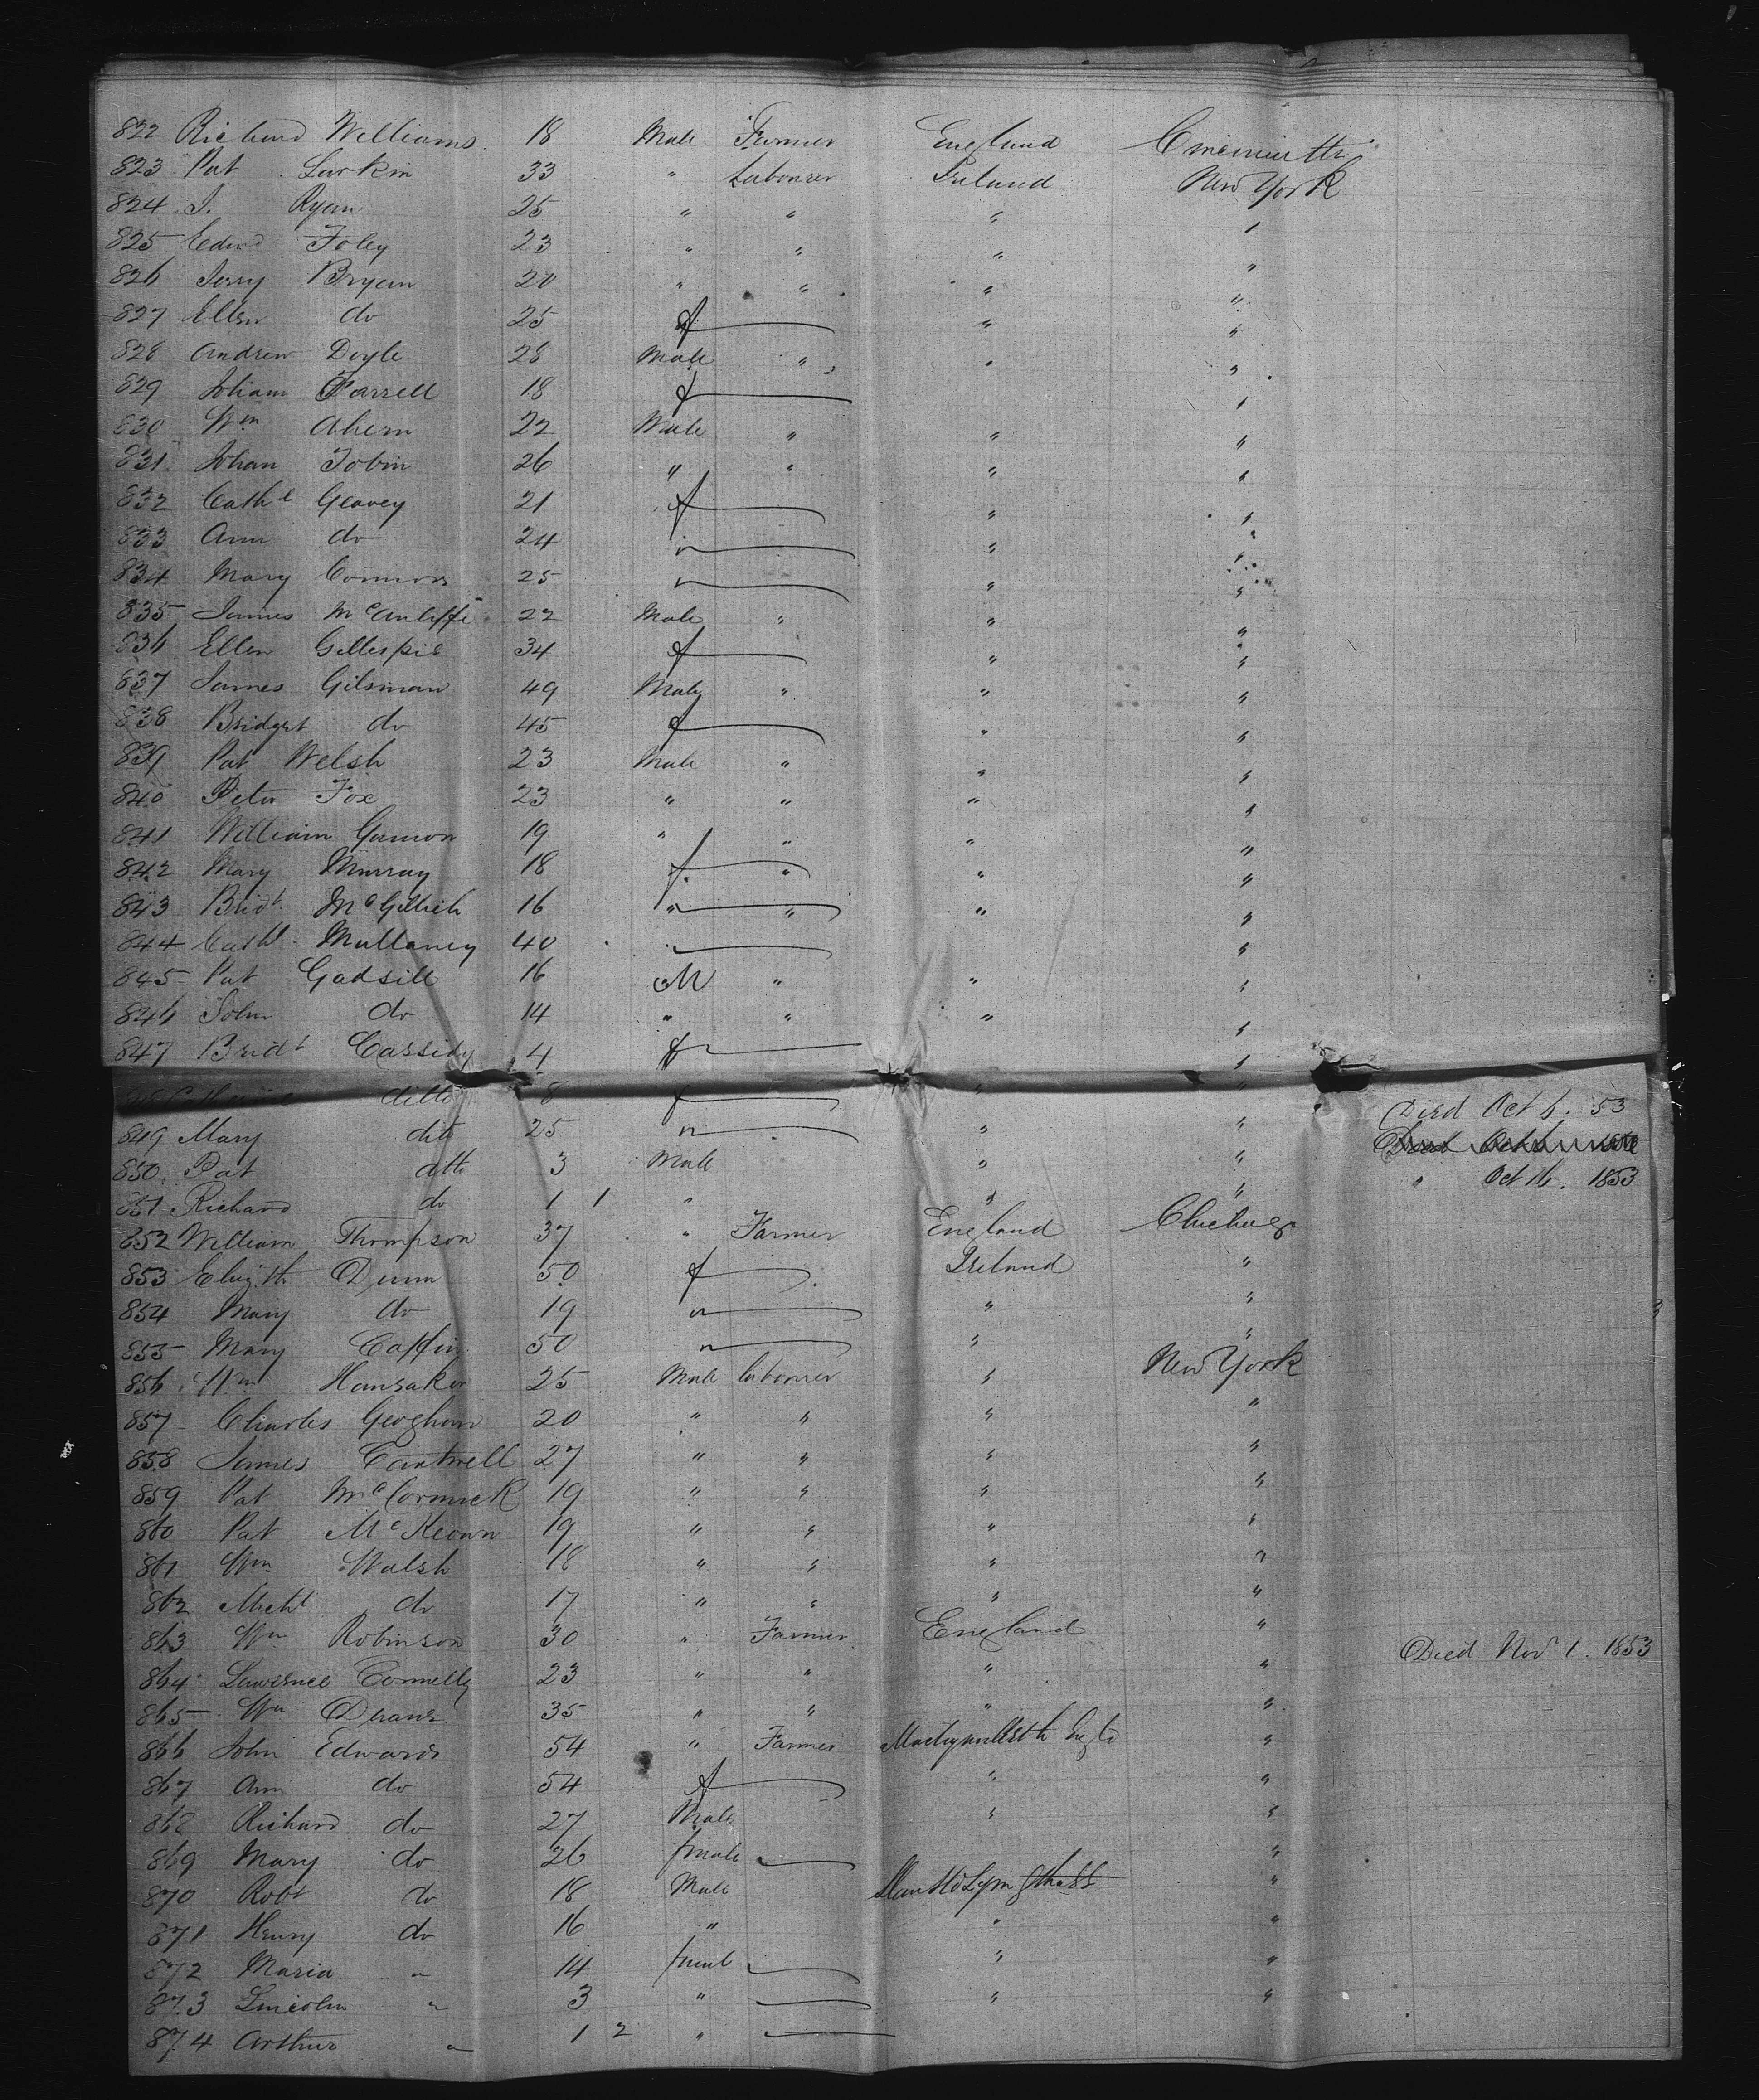 822 Richard Williams 18 Male Farmer England Cincinnatti
823 Pat Larkin 33 " Labourer Ireland New York
824 J. Ryan 25 " " " "
825 Edwd Foley 23 " " " "
826 Jerry Bryan 20 " " " "
827 Ellen do 25 f " "
828 Andrew Doyle 28 Male " " "
829 Johann Farrell 18 f "
830 Wm Ahern 22 Male " " "
831 Johan Tobin 26 " " " "
832 Cathe Geavey 21 f " "
833 Ann do 24 " " "
834 Mary Connors 25 " " "
835 James McAuliffe 22 Male " " "
836 Ellen Gillespie 34 f " "
837 James Gilsman 49 Male " " "
838 Bridget do 45 f " "
839 Pat Welsh 23 Male " " "
840 Peter Fox 23 " " " "
841 William Gannon 19 " " " "
842 Mary Murray 18 f " " "
843 Bridt 16 " " " "
844 Cathe Mullaney 40 " "
845 Pat Gadsill 16 M " " "
846 John do 14 " " " "
847 Bridt Cassidy 4 f "
ditto 8 " " "
849 Mary ditto 25 " " " Died Oct 6. 53
850 Pat ditto 3 Male " "
851 Richard do 1 1 " " " " Oct 16. 1853
852 William Thompson 37 " Farmer England Chicago
853 Elizth Dunn 50 f Ireland "
854 Mary do 19 " " "
855 Mary 50 " " "
856 Wm Hansaker 25 Male labourer " New York
857 Charles Geoghan 20 " " " "
858 James Cantwell 27 " " " "
859 Pat McCormick 19 " " " "
860 Pat McKeown 19 " " " "
861 Wm Walsh 18 " " " "
862 Michl do 17 " " " "
863 Wm Robinson 30 " Farmer England "
864 Lawrence Connelly 23 " " " " Died Nov 1. 1853
865 Wm 35 " " " "
866 John Edwards 54 " Farmer "
867 Ann do 54 f " "
868 Richard do 27 Male " "
869 Mary do 26 female "
870 Robt do 18 Male "
871 Henry do 16 " " "
872 Maria " 14 " "
873 Lincoln " 3 " " "
874 Arthur " 1 2 "